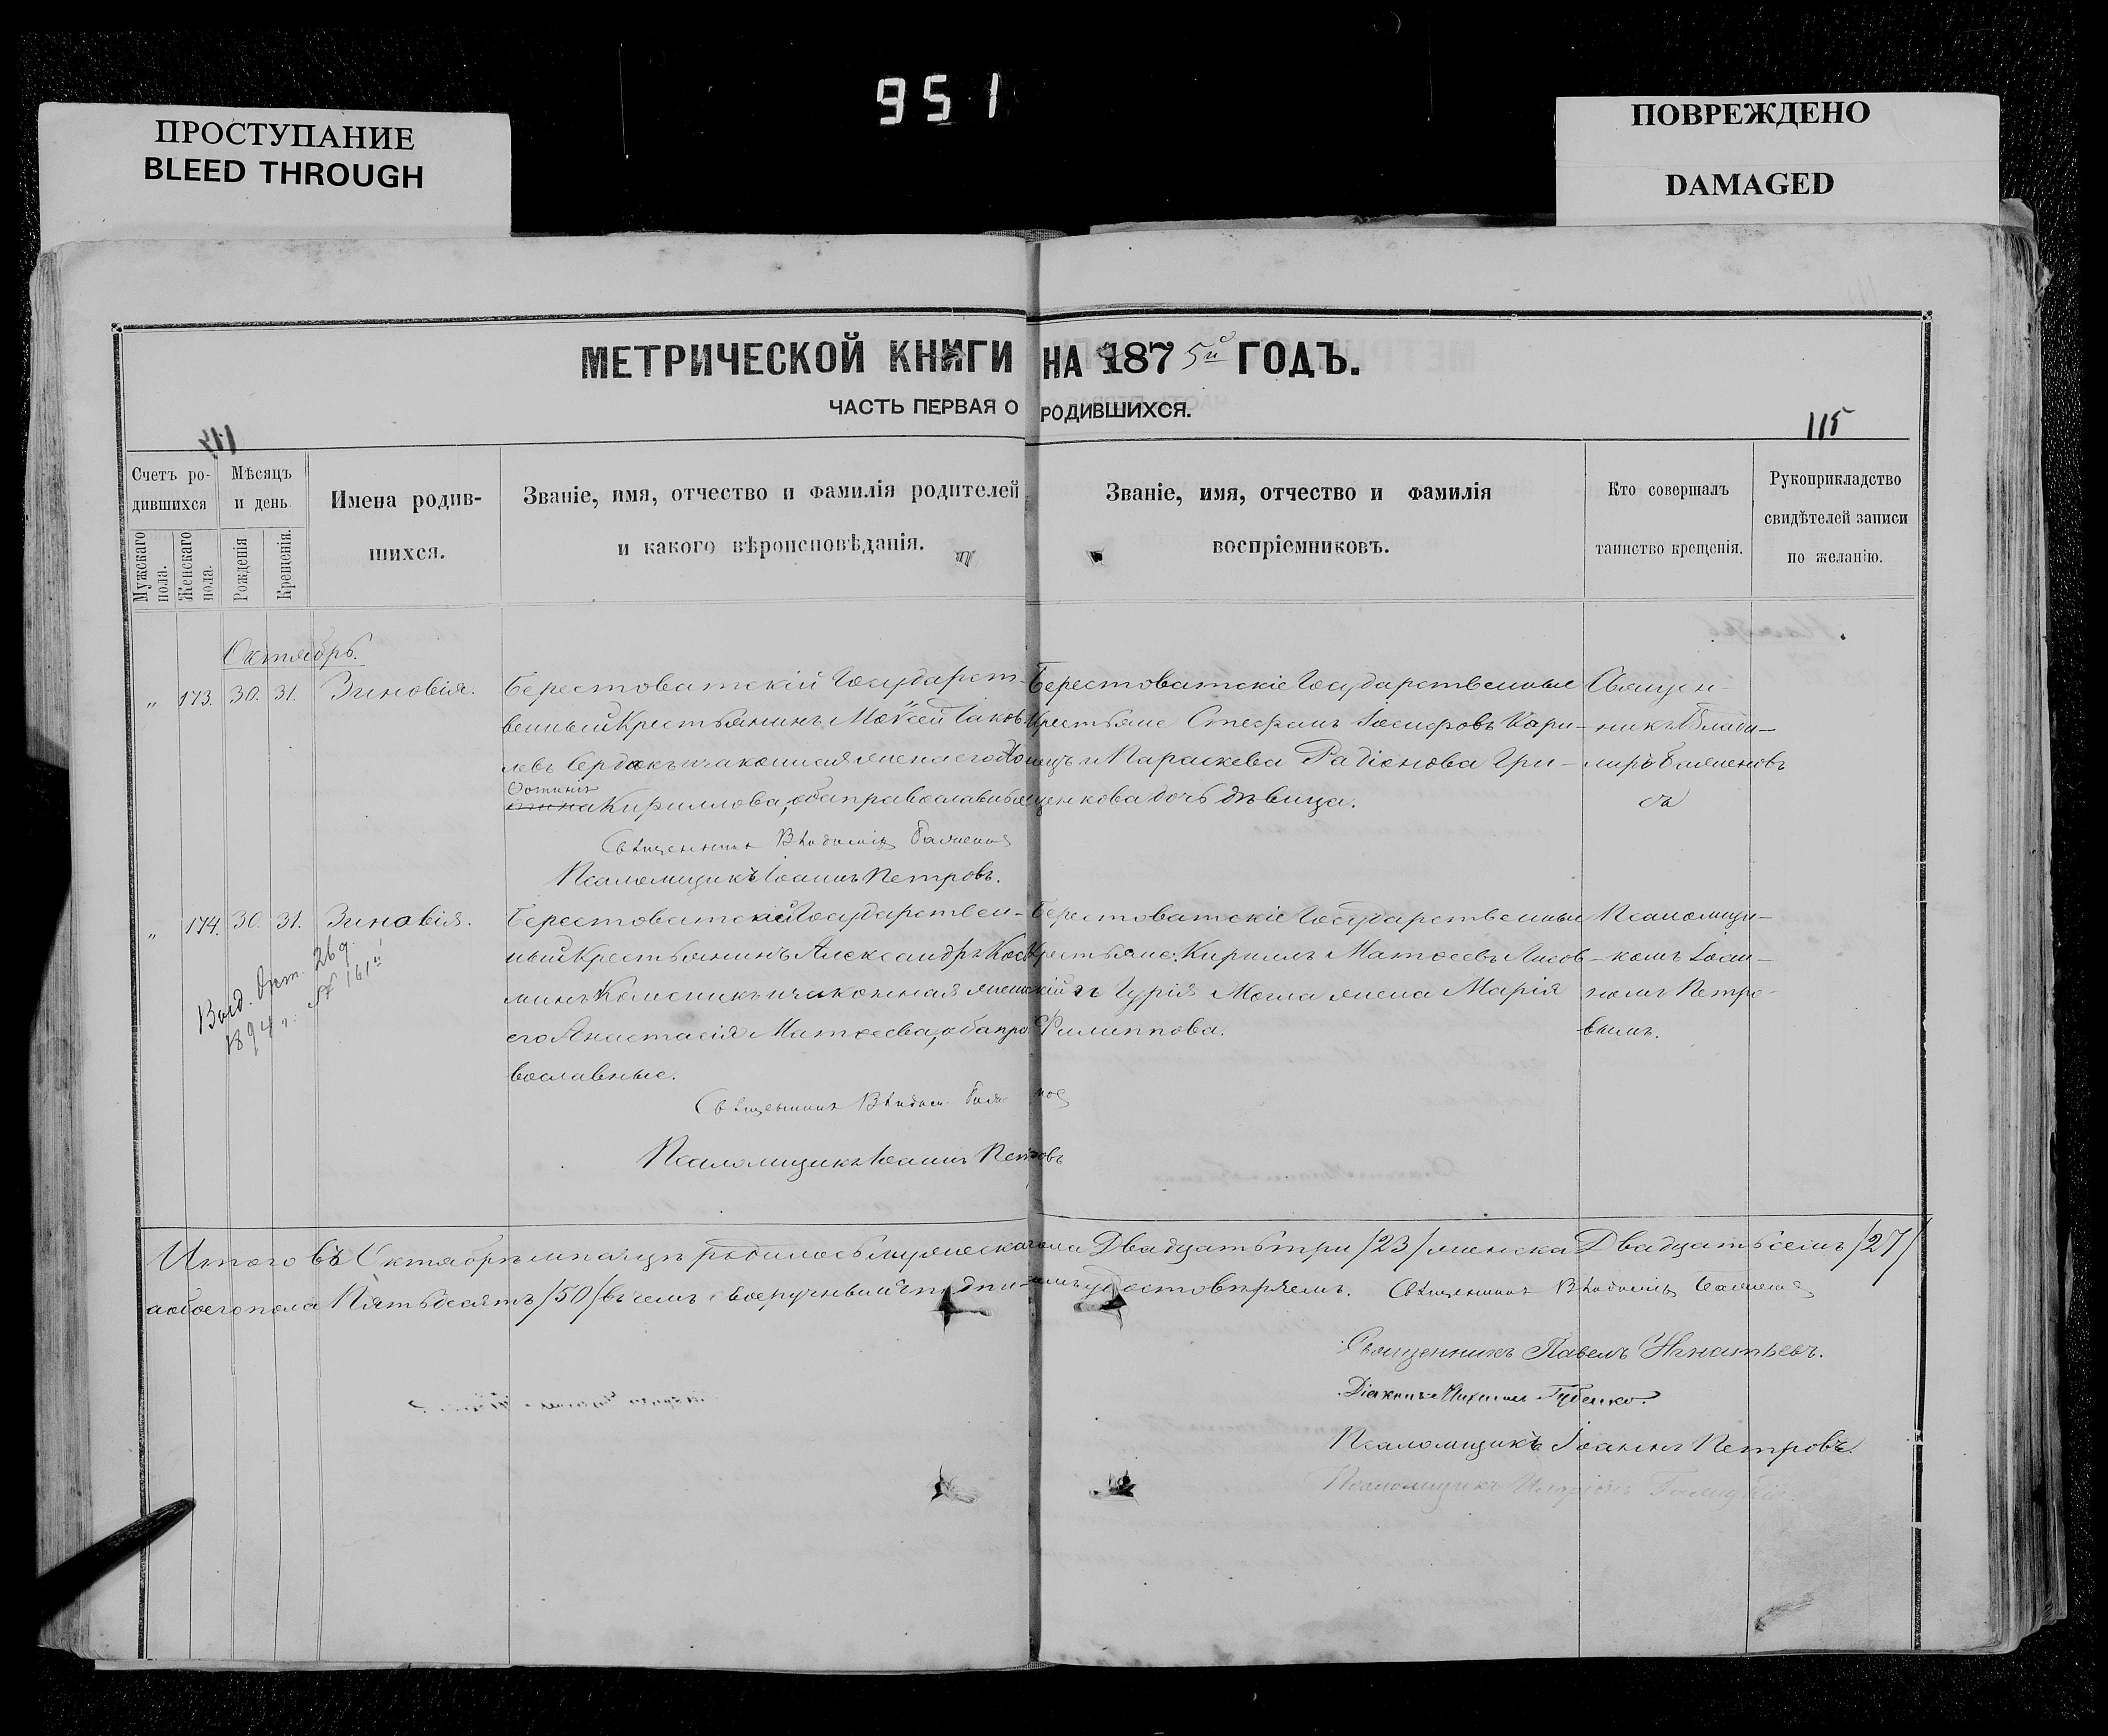 951
ПРОСТУПАНИЕ
BLEED THROUGH
ПОВРЕЖДЕНО
DAMAGED
МЕТРИЧЕСКОЙ КНИГИ НА 1875й ГОДЪ.
ЧАСТЬ ПЕРВАЯ О РОДИВШИХСЯ.
115
Счетъ родившихся
Мужскаго пола.
Женскаго пола.
Мѣсяцъ и день.
Рожденія
Крещенія.
Имена родившихся.
Званіе, имя, отчество и фамилія родителей
и какого вѣроисповѣданія.
Званіе, имя, отчество и фамилія
воспріемниковъ.
Кто совершалъ
таинство крещенія.
Рукоприкладство
свидѣтелей записи
по желанію.
Октябрь.
„ 173. 30. 31. Зиновія.
Берестоватскій Государст-
венный Крестьянинъ Моѵсей Іаков-
левъ и законная жена его
Кириллова, оба православные
Священникъ
Псаломщикъ Іоаннъ Петровъ.
Берестоватскіе Государственные
Крестьяне Стефанъ Іосифовъ
и Параскева Радіонова Гри-
ценкова дочь дѣвица.
Священ-
никъ Влади-
міръ
„ 174. 30. 31. Зиновія.
Выд. 26 д.
1894 г. № 161й
Берестоватскій Государствен-
ный Крестьянинъ Александръ Косм-
минъ Колесникъ и законная жена
его Анастасія Матѳеева, оба пра-
вославные.
Священникъ
Псаломщикъ Іоаннъ Петровъ
Берестоватскіе Государственные
Крестьяне: Кириллъ Матѳеевъ Лисов-
скій и Гурія жена Марія
Филиппова.
Псаломщи-
комъ Іоан-
номъ Петро-
вымъ.
Итого въ Октябрѣ мѣсяцѣ родилось мужеска пола Двадцать три /23/ женска Двадцать семь /27/
а обоего пола Пятьдесятъ /50/ въ чемъ своеручнымъ подписомъ удостовѣряемъ. Священникъ
Священникъ Павелъ Игнатьевъ.
Діаконъ Михаилъ Губенко.
Псаломщикъ Іоаннъ Петровъ.
Псаломщикъ